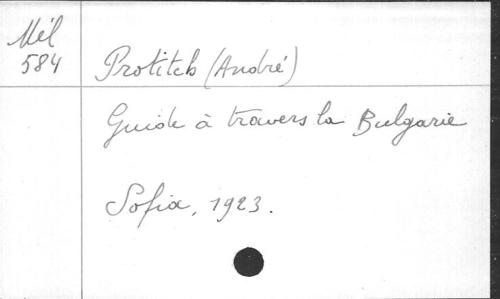 Mél
584
Protitch (André)
Guide à travers la Bulgarie
Sofia, 1923.